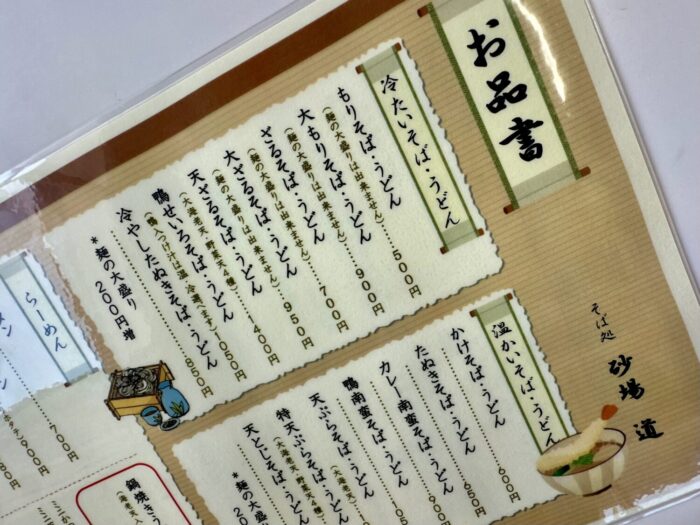 お品書
そば処 砂場 道
冷たいそば・うどん
もりそば・うどん 500円
(麺の大盛りは出来ません)
大もりそば・うどん 900円
(麺の大盛りは出来ません)
ざるそば・うどん 700円
大ざるそば・うどん 950円
(麺の大盛りは出来ません)
天ざるそば・うどん 400円
(大海老天・野菜天4種)
鴨せいろそば・うどん 1050円
(鴨入つけ汁は温・冷選べます)
冷やしたぬきそば・うどん 850円
*麺の大盛り 200円増
温かいそば・うどん
かけそば・うどん 600円
たぬきそば・うどん 650円
カレー南蛮そば・うどん 900
鴨南蛮そば・うどん
天ぷらそば・うどん
(大海老天)
特天ぷらそば・うどん
(大海老天・野菜天4種)
天とじそば・うどん
*麺の大盛
らーめん
700円
鍋焼きう